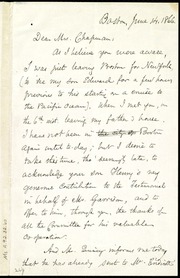 Boston, June 14, 1866.
Dear Mrs. Chapman:
As I believe you were aware,
I was just leaving Boston for Norfolk
(to see my son Edward for a few hours
previous to his starting on a cruise to
the Pacific Ocean), when I met you, on
the 6th inst. leaving my father's house.
I have not been in the city of Boston
again until to-day; but I desire to
take this time, tho' seemingly late, to
acknowledge your son Henry's very
generous contribution to the Testimonial
in behalf of Mr. Garrison, and to
offer to him, through you, the thanks for
all the Committee for his valuable
co-operation.
And Mr. Quincy informs me today
that he has already sent to Mr.